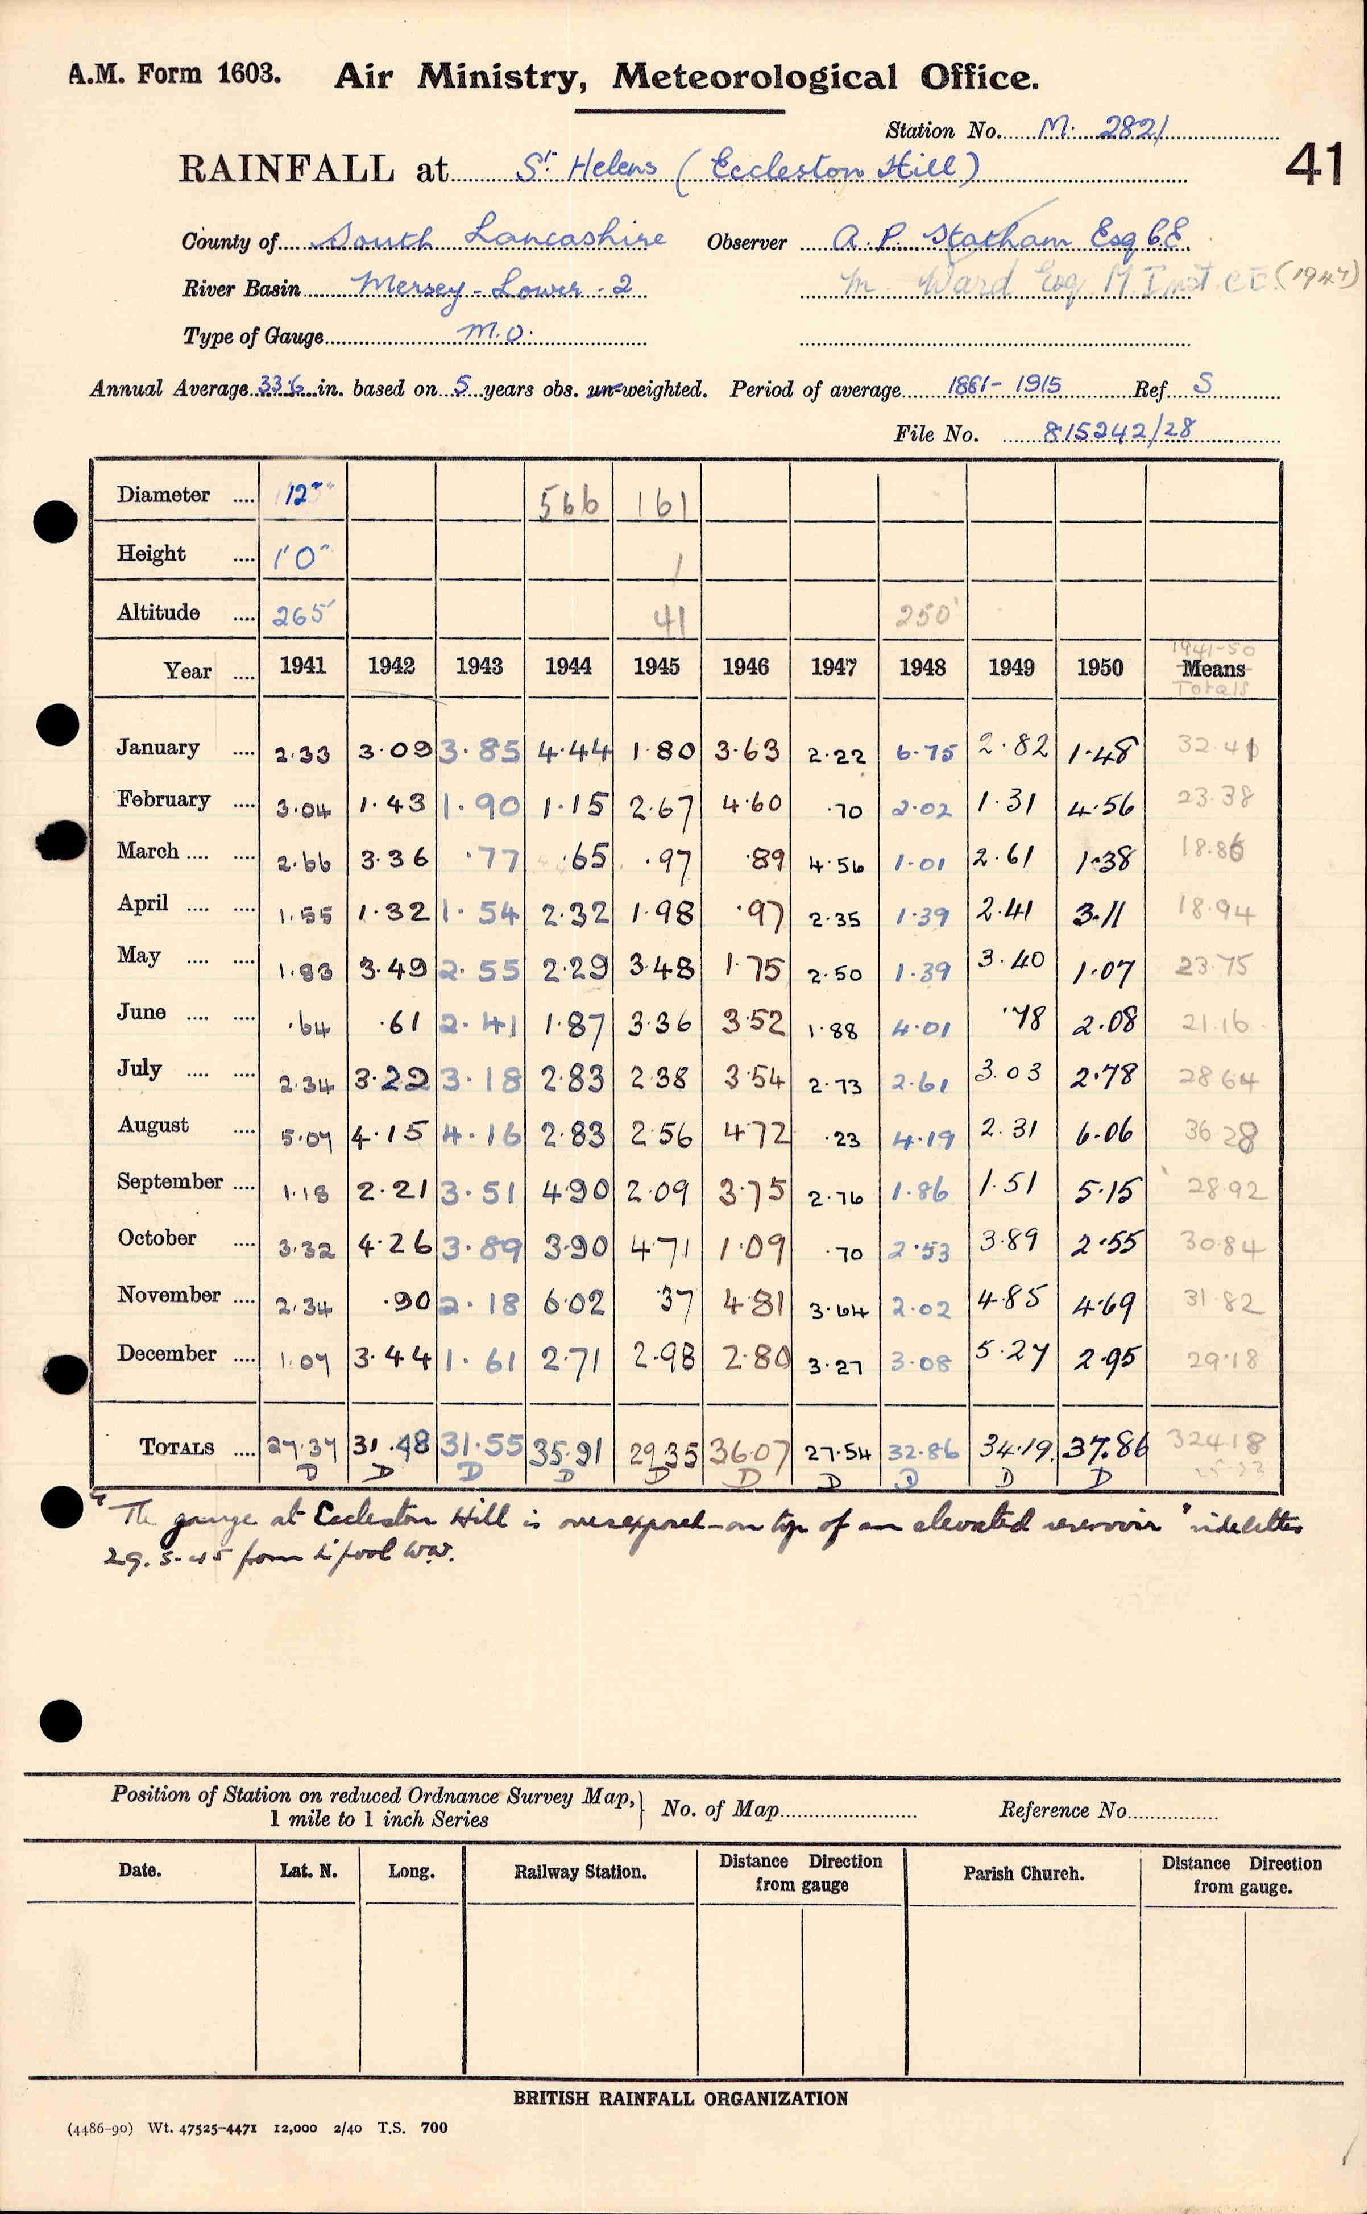 A.M. Form 1603. Air Ministry, Meteorological Office.
Station No. M. 2821
RAINFALL at St. Helens (Eccleston Hill) 41
County of South Lancashire Observer A. P. Statham Esq C.E.
River Basin Mersey - Lower - 2 M Ward Esq M. Inst. C.E. (1947)
Type of Gauge M.O.
Annual Average 33.6 in. based on 5 years obs. un-weighted. Period of average 1881-1915 Ref. S
File No. 815242/28
Diameter .... 12" 566 161
Height .... 1'0" 1
Altitude .... 265' 41 250'
1941-50
Year .... 1941 1942 1943 1944 1945 1946 1947 1948 1949 1950 Means
Totals
January .... 2.33 3.09 3.85 4.44 1.80 3.63 2.22 6.75 2.82 1.48 32.41
February .... 3.04 1.43 1.90 1.15 2.67 4.60 .70 2.02 1.31 4.56 23.38
March .... .... 2.66 3.36 .77 .65 .97 .89 4.56 1.01 2.61 1.38 18.86
April .... .... 1.55 1.32 1.54 2.32 1.98 .97 2.35 1.39 2.41 3.11 18.94
May .... .... 1.83 3.49 2.55 2.29 3.48 1.75 2.50 1.39 3.40 1.07 23.75
June .... .... .64 .61 2.41 1.87 3.36 3.52 1.88 4.01 .78 2.08 21.16
July .... .... 2.34 3.22 3.18 2.83 2.38 3.54 2.73 2.61 3.03 2.78 28.64
August .... 5.07 4.15 4.16 2.83 2.56 4.72 .23 4.19 2.31 6.06 36.28
September .... 1.18 2.21 3.51 4.90 2.09 3.75 2.76 1.86 1.51 5.15 28.92
October .... 3.32 4.26 3.89 3.90 4.71 1.09 .70 2.53 3.89 2.55 30.84
November .... 2.34 .90 2.18 6.02 .37 4.81 3.64 2.02 4.85 4.69 31.82
December .... 1.07 3.44 1.61 2.71 2.98 2.80 3.27 3.08 5.27 2.95 29.18
TOTALS .... 27.37 31.48 31.55 35.91 29.35 36.07 27.54 32.86 34.19 37.86 324.18
D D D D D D D D D D
"The gauge at Eccleston Hill is overexposed - on top of an elevated reservoir" vide letter
29.5.45 from L'pool W.W.
Position of Station on reduced Ordnance Survey Map, } No. of Map Reference No.
1 mile to 1 inch Series
Date. Lat. N. Long. Railway Station. Distance Direction from gauge Parish Church. Distance Direction from gauge.
BRITISH RAINFALL ORGANIZATION
(4486-90) Wt. 47525-4471 12,000 2/40 T.S. 700